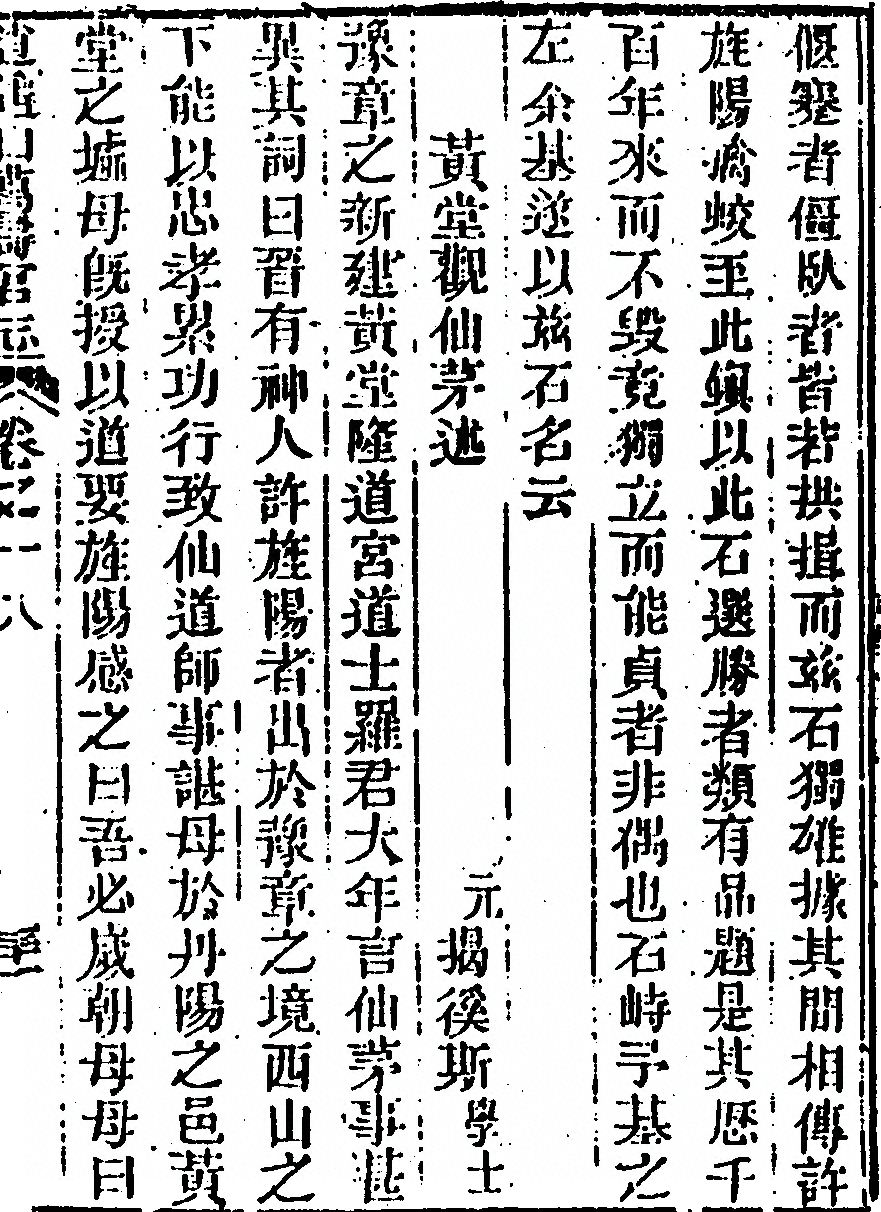 偃蹇者僵臥者皆若拱揖而兹石獨雄據其間相傳許
旌陽斬蛟至此鎮以此石選勝者類有品題是其歷千
百年來而不毀竟獨立而能貞者非偶也石峙予基之
左余基遂以兹石名云
黃堂觀仙茅述　元揭徯斯學士
豫章之新建黃堂隆道宮道士羅君大年言仙茅事甚
異其詞曰晉有神人許旌陽者出於豫章之境西山之
下能以忠孝累功行致仙道師事諶母於丹陽之邑黃
堂之墟母旣授以道要旌陽感之曰吾必歲朝母母曰
逍遙山萬壽宮志　卷之十八